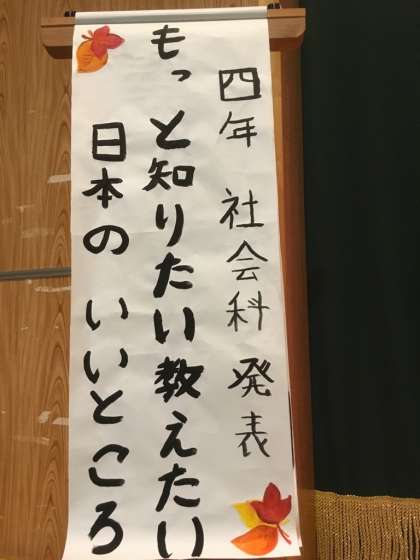 四年 社会科 発表
もっと知りたい教えたい
日本の いいところ